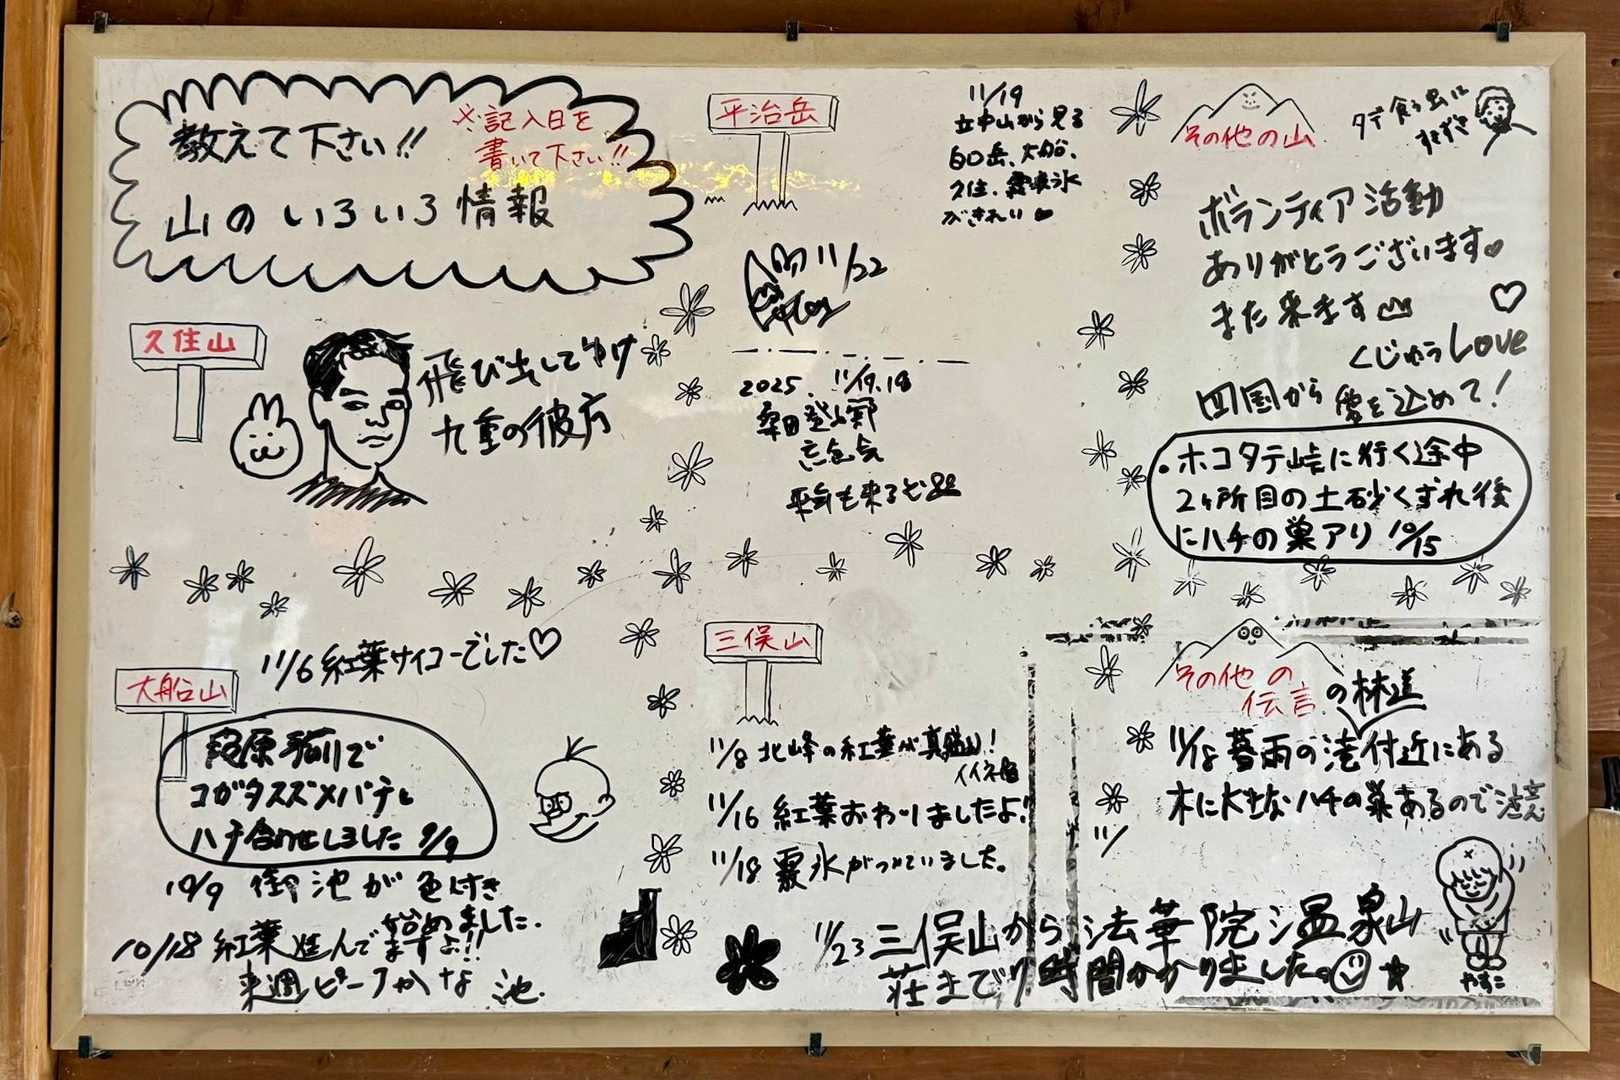 教えて下さい!!
※記入日を
書いて下さい!!
山のいろいろ情報
久住山
飛び出してゆけ
九重の彼方
平治岳
11/19
立中山から見る
白口岳、大船、
久住、霧氷
がきれい
11/22
2025. 11/19.18
来年も来るぜ
その他の山
タデ食う虫に
すずき
ボランティア活動
ありがとうございます
また来ます
くじゅうLove
四国から愛を込めて!
・ホコタテ峠に行く途中
2ヶ所目の土砂くずれ後
にハチの巣アリ 10/15
11/6 紅葉サイコーでした♡
大船山
段原狩りで
コガタスズメバチと
ハチ合わせしました 9/9
10/9 御池が色付き
始めました.
10/18 紅葉進んでますよ!!
来週ピークかな 池.
三俣山
11/8 北峰の紅葉が真盛り!
11/16 紅葉おわりましたよ!!
11/18 霧氷がついていました。
11/23 三俣山から法華院温泉山
荘まで7時間かかりました。
その他の
伝言
の林道
11/15 暮雨の滝付近にある
木に大きなハチの巣あるので注意
11/
やすこ